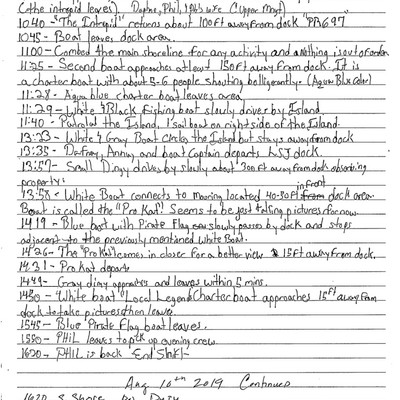 (the intrepid leaves) Daphne, Phil,
1040- "The Intrepid" returns about 100ft away from dock "PA697"
1045- Boat leaves dock area.
1100- Combed the main shoreline for any activity and nothing is out of order
11:25 - Second boat approaches at least 150ft away from dock. It is
a charter boat with about 5-6 people shouting belligerantly. (Aqua Blue color)
11:28 - Aqua blue charter boat leaves area.
11:29 - White & Black fishing boat slowly driver by Island.
11:40 - Patrolal the Island. 1 sail boat on right side of the Island.
13:23 - White & Gray Boat Circles the Island but stays away from dock
13:35 - and boat Captain departs LSJ dock.
13:57 - Small Dingy drives by slowly about 300ft away from dock observing
property.
13:58 - White Boat connects to mooring located 40-50ft from in front dock area
Boat is called the "Pro Kat". Seems to be just taking pictures for now.
1419 - Blue boat with Pirate Flag slowly passes by dock and stops
adjacent to the previously mentioned White Boat.
1426 - The "Pro Kat" comes in closer for a better view 15ft away from dock.
1431 - Pro Kat departs
1449 - Gray dingy approaches and leaves within 5 mins.
1450 - White boat "Local Legend" Charter boat approaches 15ft away from
dock to take pictures then leaves.
1545 - Blue Pirate Flag boat leaves.
1550 - PHIL leaves to pick up evening crew.
1620 - PHIL is back "End Shift"
Aug 10th 2019 Continued
1620